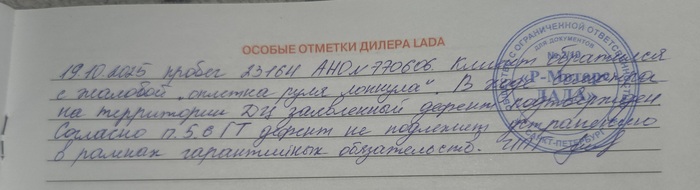 ОСОБЫЕ ОТМЕТКИ ДИЛЕРА LADA
19.10.2025 пробег 23164 АНО№770606 Клиент обратился
с жалобой "оплетка руля лопнула". В ходе осмотра
на территории ДЦ заявленный дефект подтвержден
Согласно п.5.6 ГТ дефект не подлежит устранению
в рамках гарантийных обязательств.
ДЛЯ ДОКУМЕНТОВ
№ 2/10
«Р-Моторс
ЛАДА»
САНКТ-ПЕТЕРБУРГ